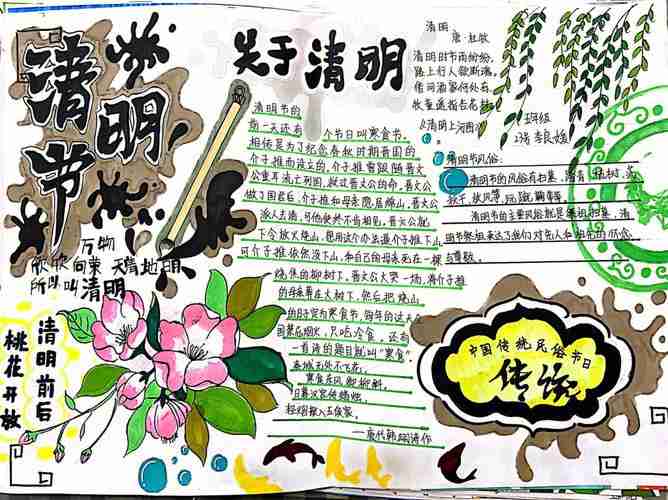 清明节
万物
欣欣向荣 天清地明
所以叫清明
清明前后
桃花开放
关于清明
清明节的
前一天还有一个节日叫寒食节。
相传是为了纪念春秋时期晋国的
介子推而设立的，介子推曾跟随晋文
公重耳流亡列国，
做了国君后，介子推和母亲隐居绵山，晋文公
派人去请，
下令放火烧山，想用这个办法逼介子推下山，
可介子推依然没下山，和自己的母亲死在一棵
烧焦的柳树下。晋文公大哭一场，将介子推
的母亲葬在大树下，然后把烧山
的日子定为寒食节，每年的这天全
国禁忌烟火，只吃冷食，还有
一首诗的题目就叫“寒食”。
春城无处不飞花，
寒食东风御柳斜。
日暮汉宫传蜡烛，
轻烟散入五侯家。
——唐代韩翃诗作
清明
唐·杜牧
清明时节雨纷纷，
路上行人欲断魂。
借问酒家何处有，
牧童遥指杏花村。
《清明上河图》
清明节风俗：
清明节的风俗有扫墓、踏青、植树、
放风筝、
清明节的主要风俗就是祭祖扫墓，清
明节祭祖表达了我们对先人和祖先的怀念
与尊敬。
中国传统民俗节日
传说